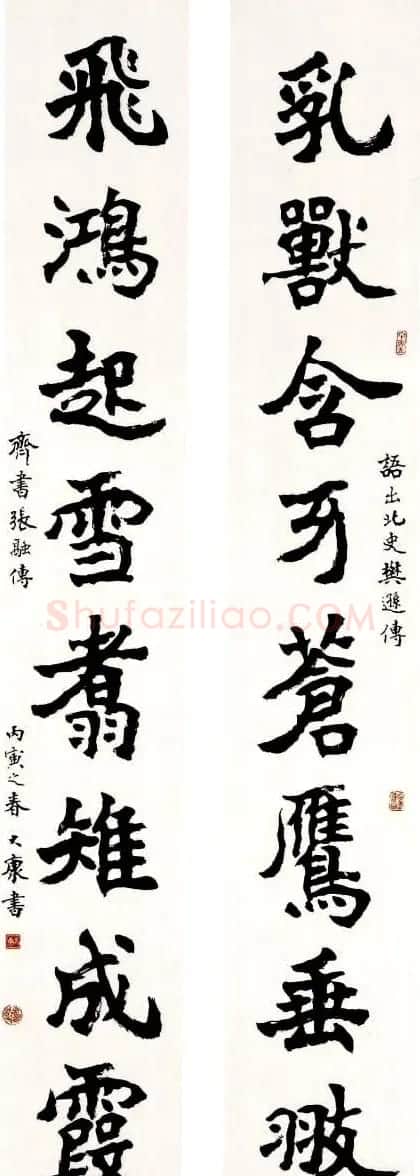 乳獸含牙蒼鷹垂翅
語出北史樊遜傳
飛鴻起雪翥雉成霞
齊書張融傳
丙寅之春大康書
Shufaziliao.COM